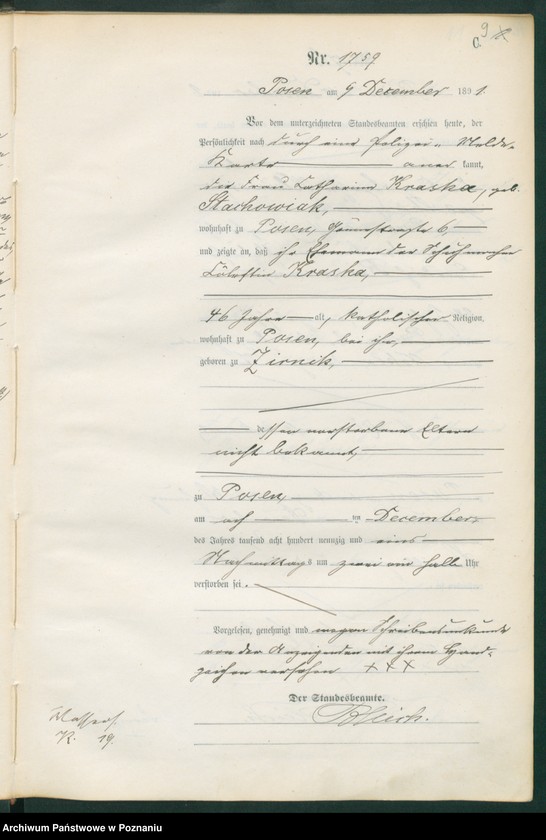 9
Nr. 1759
Posen am 9 December 1891.
Vor dem unterzeichneten Standesbeamten erschien heute, der
Persönlichkeit nach durch eine Polizei-Melde-
Karte anerkannt,
die Frau Catharina Kraska, geb.
Stachowiak,
wohnhaft zu Posen, 6,
und zeigte an, daß ihr Ehemann der Schuhmacher
Kraska,
46 Jahre alt, katholischer Religion,
wohnhaft zu Posen, bei ihr,
geboren zu Zirnik,
dessen verstorbene Eltern
nicht bekannt,
zu Posen,
am acht ten December
des Jahres tausend acht hundert neunzig und eins
Nachmittags um zwei ein halb Uhr
verstorben sei.
Vorgelesen, genehmigt und wegen Schreibensunkunde
von der Anzeigenden mit ihrem Hand-
zeichen versehen +++
Der Standesbeamte.
K. 19.
Archiwum Państwowe w Poznaniu